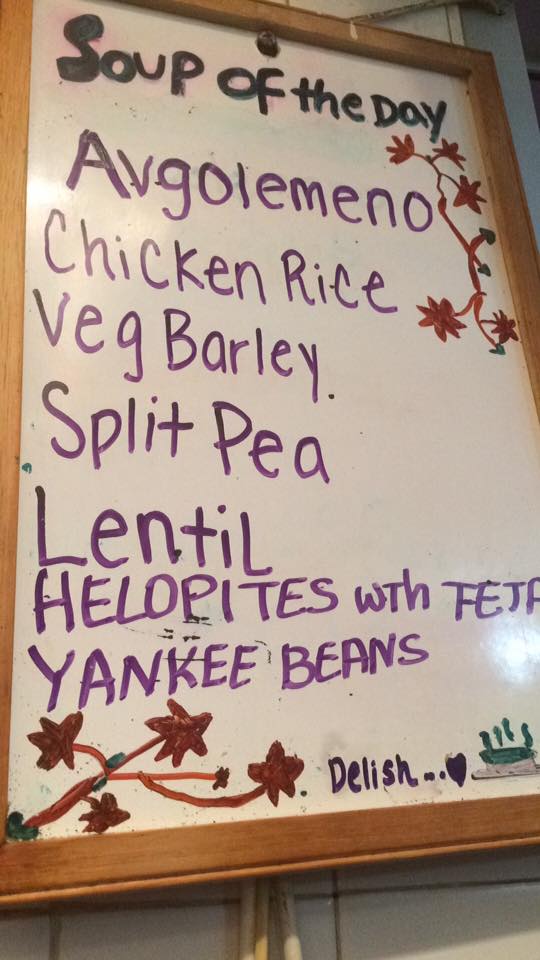 Soup of the Day
Avgolemeno
Chicken Rice
Veg Barley.
Split Pea
Lentil
HELOPITES wth FETA
YANKEE BEANS
Delish...